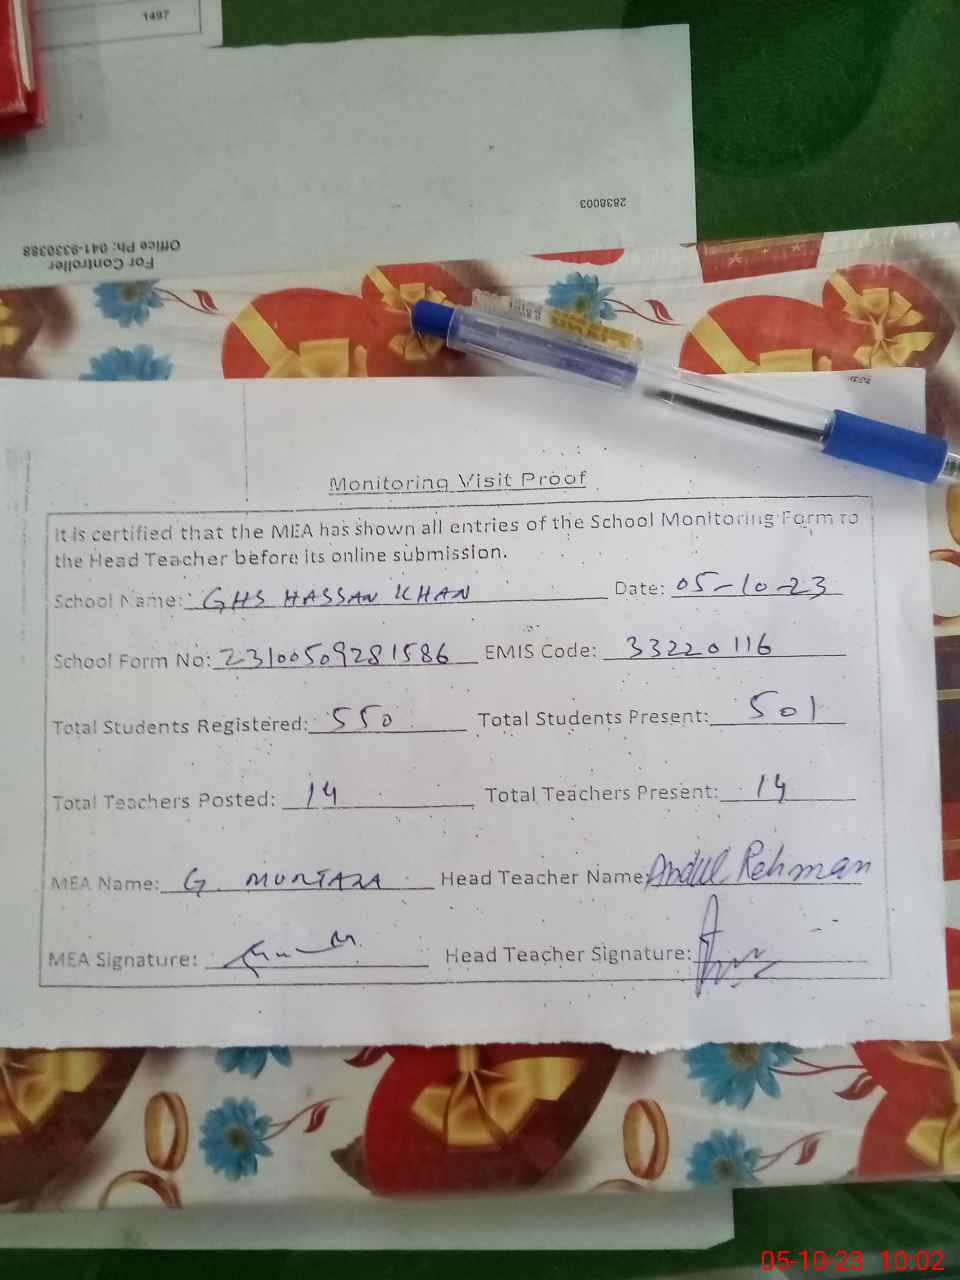 1497
2838003
For Controller
Office Ph: 041-9330388
Monitoring Visit Proof
It is certified that the MEA has shown all entries of the School Monitoring Form to
the Head Teacher before its online submission.
School Name: GHS HASSAN KHAN Date: 05-10-23
School Form No: 23100509281586 EMIS Code: 33220116
Total Students Registered: 550 Total Students Present: 501
Total Teachers Posted: 14 Total Teachers Present: 14
MEA Name: G. MURTAZA Head Teacher Name: Abdul Rehman
MEA Signature: Head Teacher Signature:
05-10-23 10:02